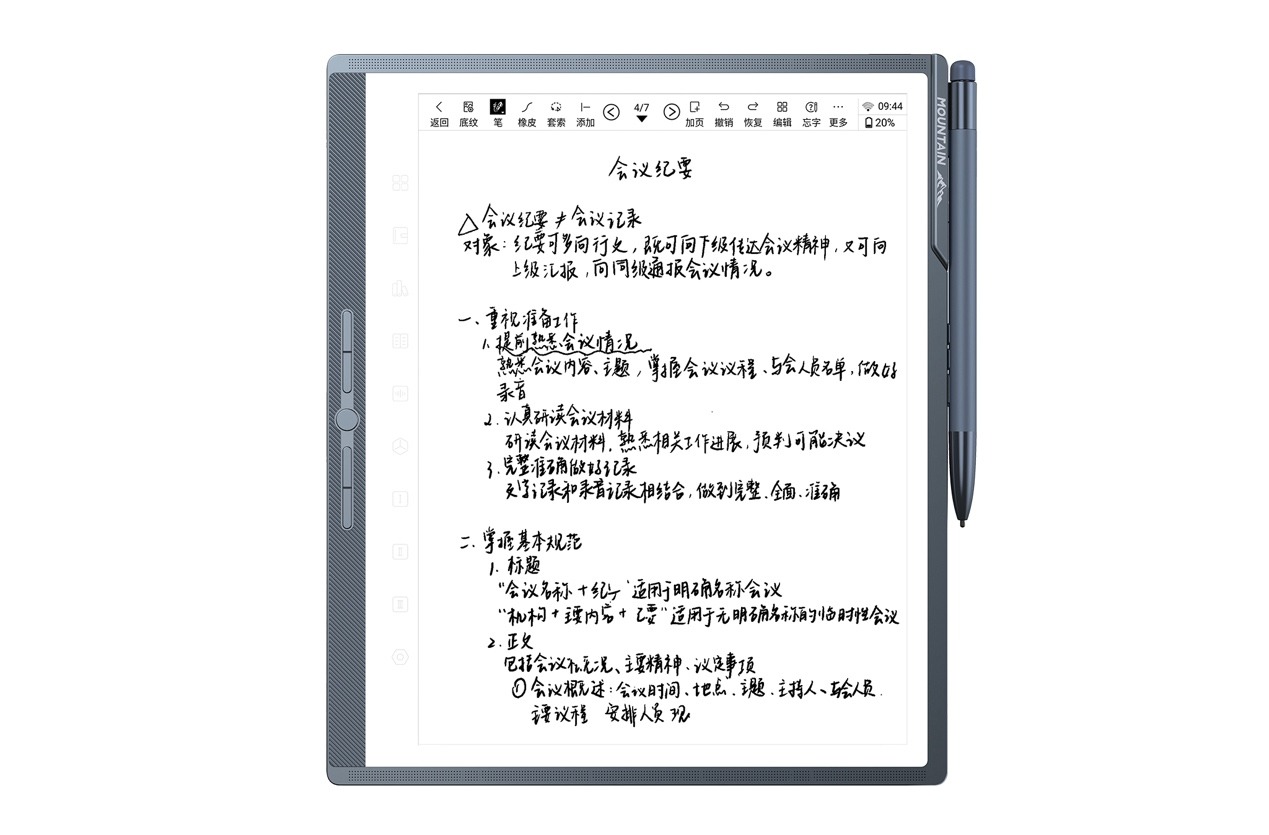 返回 底纹 笔 橡皮 套索 添加 4/7 加页 撤销 恢复 编辑 忘字 更多 09:44 20%
MOUNTAIN
会议纪要
△会议纪要≠会议记录
对象：纪要可多向行文，既可向下级传达会议精神，又可向
上级汇报，向同级通报会议情况。
一、重视准备工作
1.提前熟悉会议情况
熟悉会议内容、主题，掌握会议议程、与会人员名单，做好
录音
2.认真研读会议材料
研读会议材料，熟悉相关工作进展，预判可能决议
3.完整准确做好记录
文字记录和录音记录相结合，做到完整、全面、准确
二、掌握基本规范
1.标题
“会议名称+纪 ”适用于明确名称会议
“机构+主要内容+ 要”适用于无明确名称的临时性会议
2.正文
包括会议 况、主要精神、议定事项
①会议概述：会议时间、地点、主题、主持人、与会人员
主要议程 安排人员 现